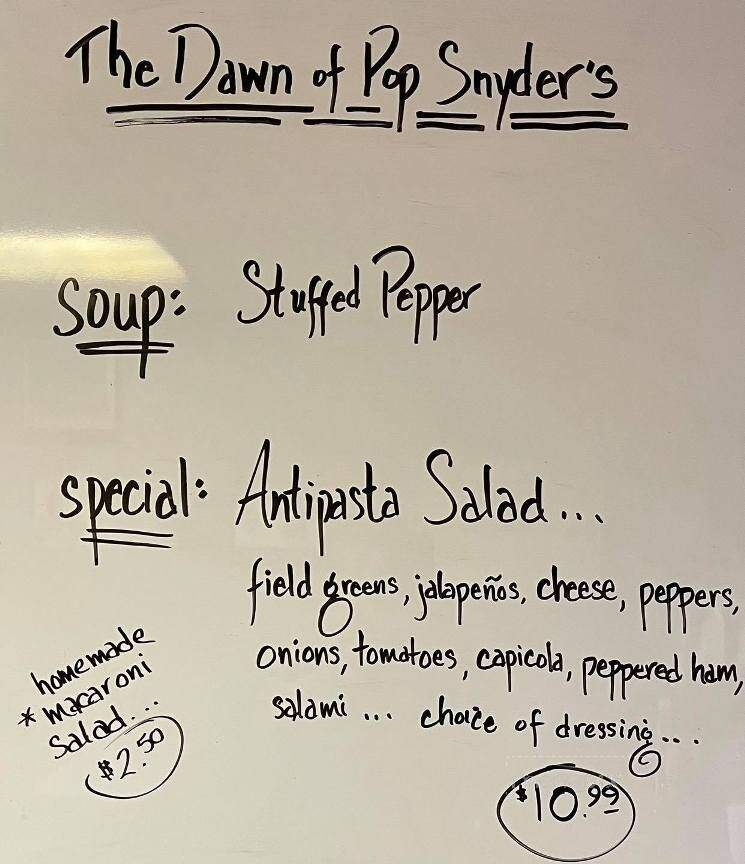 The Dawn of Pop Snyder's
Soup: Stuffed Pepper
special: Antipasta Salad...
field greens, jalapeños, cheese, peppers,
onions, tomatoes, capicola, peppered ham,
salami ... choice of dressing...
$10.99
homemade
* macaroni
Salad...
$2.50